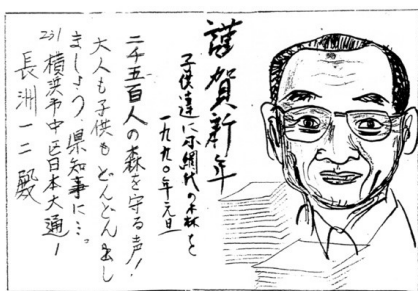 謹賀新年
子供達に小網代の森を
一九九〇年元旦
二千五百人の森を守る声!
大人も子供もどんどん出し
ましょう県知事に…。
231 横浜市中区日本大通1
長洲一二殿